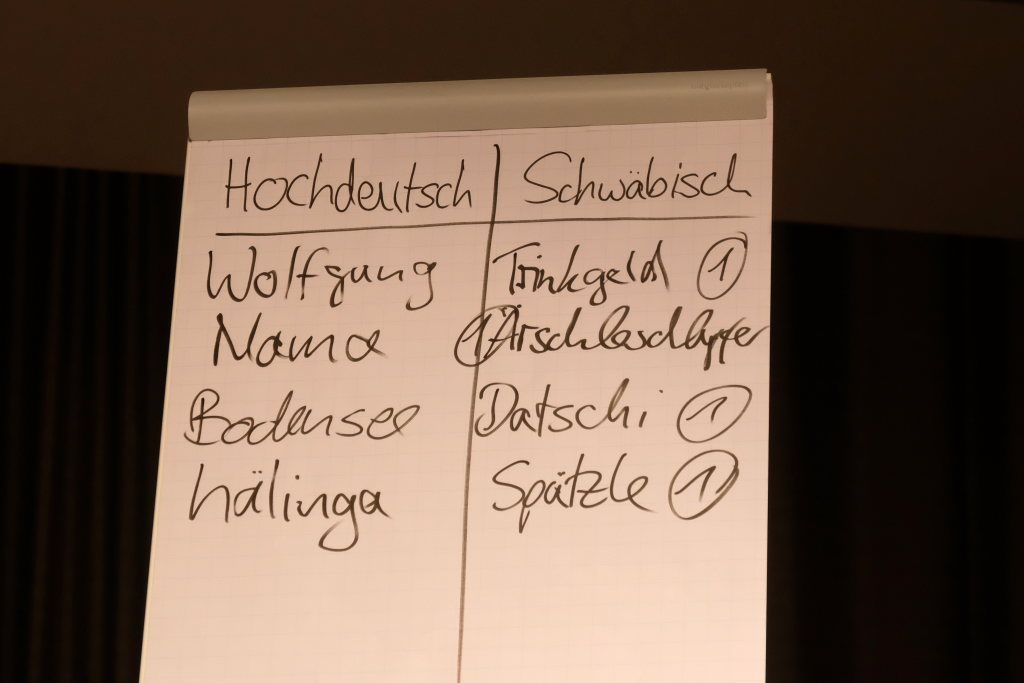 Hochdeutsch Schwäbisch
Wolfgang Trinkgeld 1
Mama 1 Arschlaschlapfer
Bodensee Datschi 1
hälinga Spätzle 1